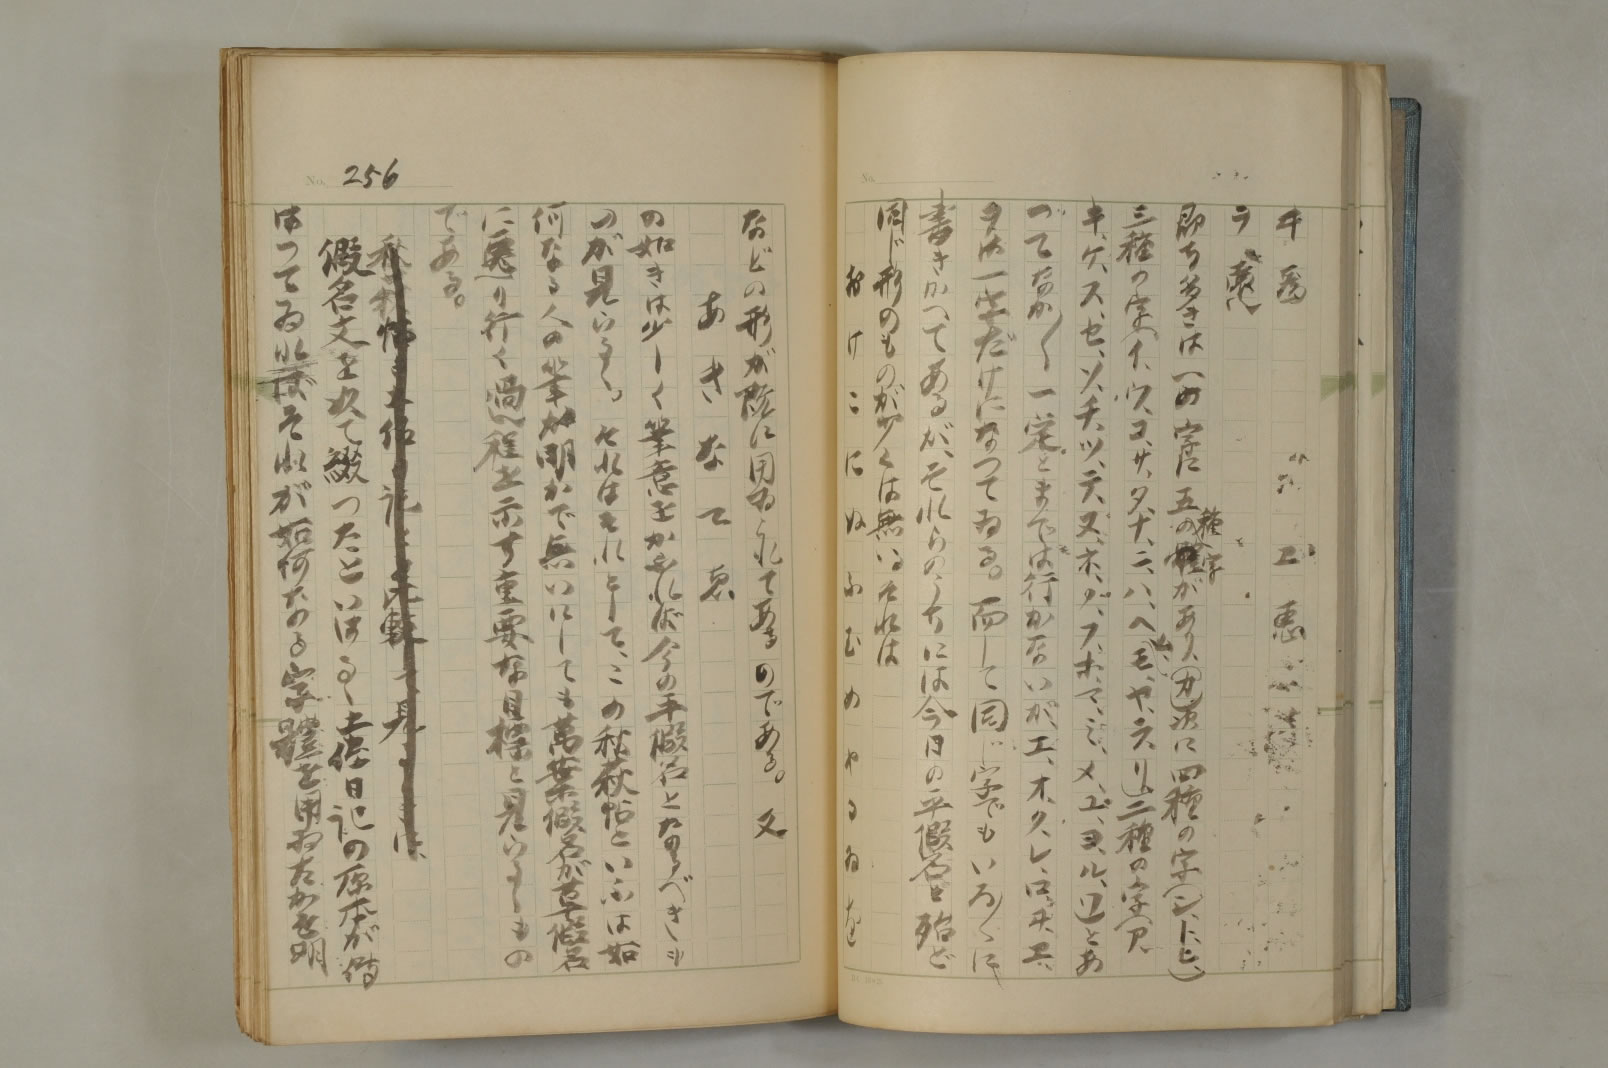 ヰ 爲 ヱ 惠
ラ
即ち多きは一の字に五の種字があり、(カ)次に四種の字(シ、ト、ヒ、)
三種の字(イ、ウ、コ、サ、タ、ナ、ニ、ハ、ヘ、モ、ヤ、ラ、リ)二種の字(ア、
キ、ケ、ス、セ、ソ、チ、ツ、テ、ヌ、ネ、ノ、フ、ホ、マ、ミ、メ、ユ、ヨ、ル、ワ)とあ
つてなか〱一定とまでは行かないが、エ、オ、ク、レ、ロ、ヰ、ヱ、
ヲは一字だけになつてゐる。而して同じ字でもいろ〱に
書きかへてあるが、それらのうちには今日の平假名と殆ど
同じ形のものが少くは無い。それは
おけこにぬふむめやるゐを
No. 256
などの形が既に用ゐられてあるのである。又
あきなてゑ
の如きは少しく筆意をかふれば今の平假名となるべきも
のが見らるゝ。それはそれとして、この秋萩帖といふは如
何なる人の筆か明かで無いにしても萬葉假名が草假名
に更り行く過程を示す重要な目標と見らるゝもの
である。
假名文を以て綴つたといはるゝ土佐日記の原本が傳
はつてゐればそれが如何なる字體を用ゐたかを明